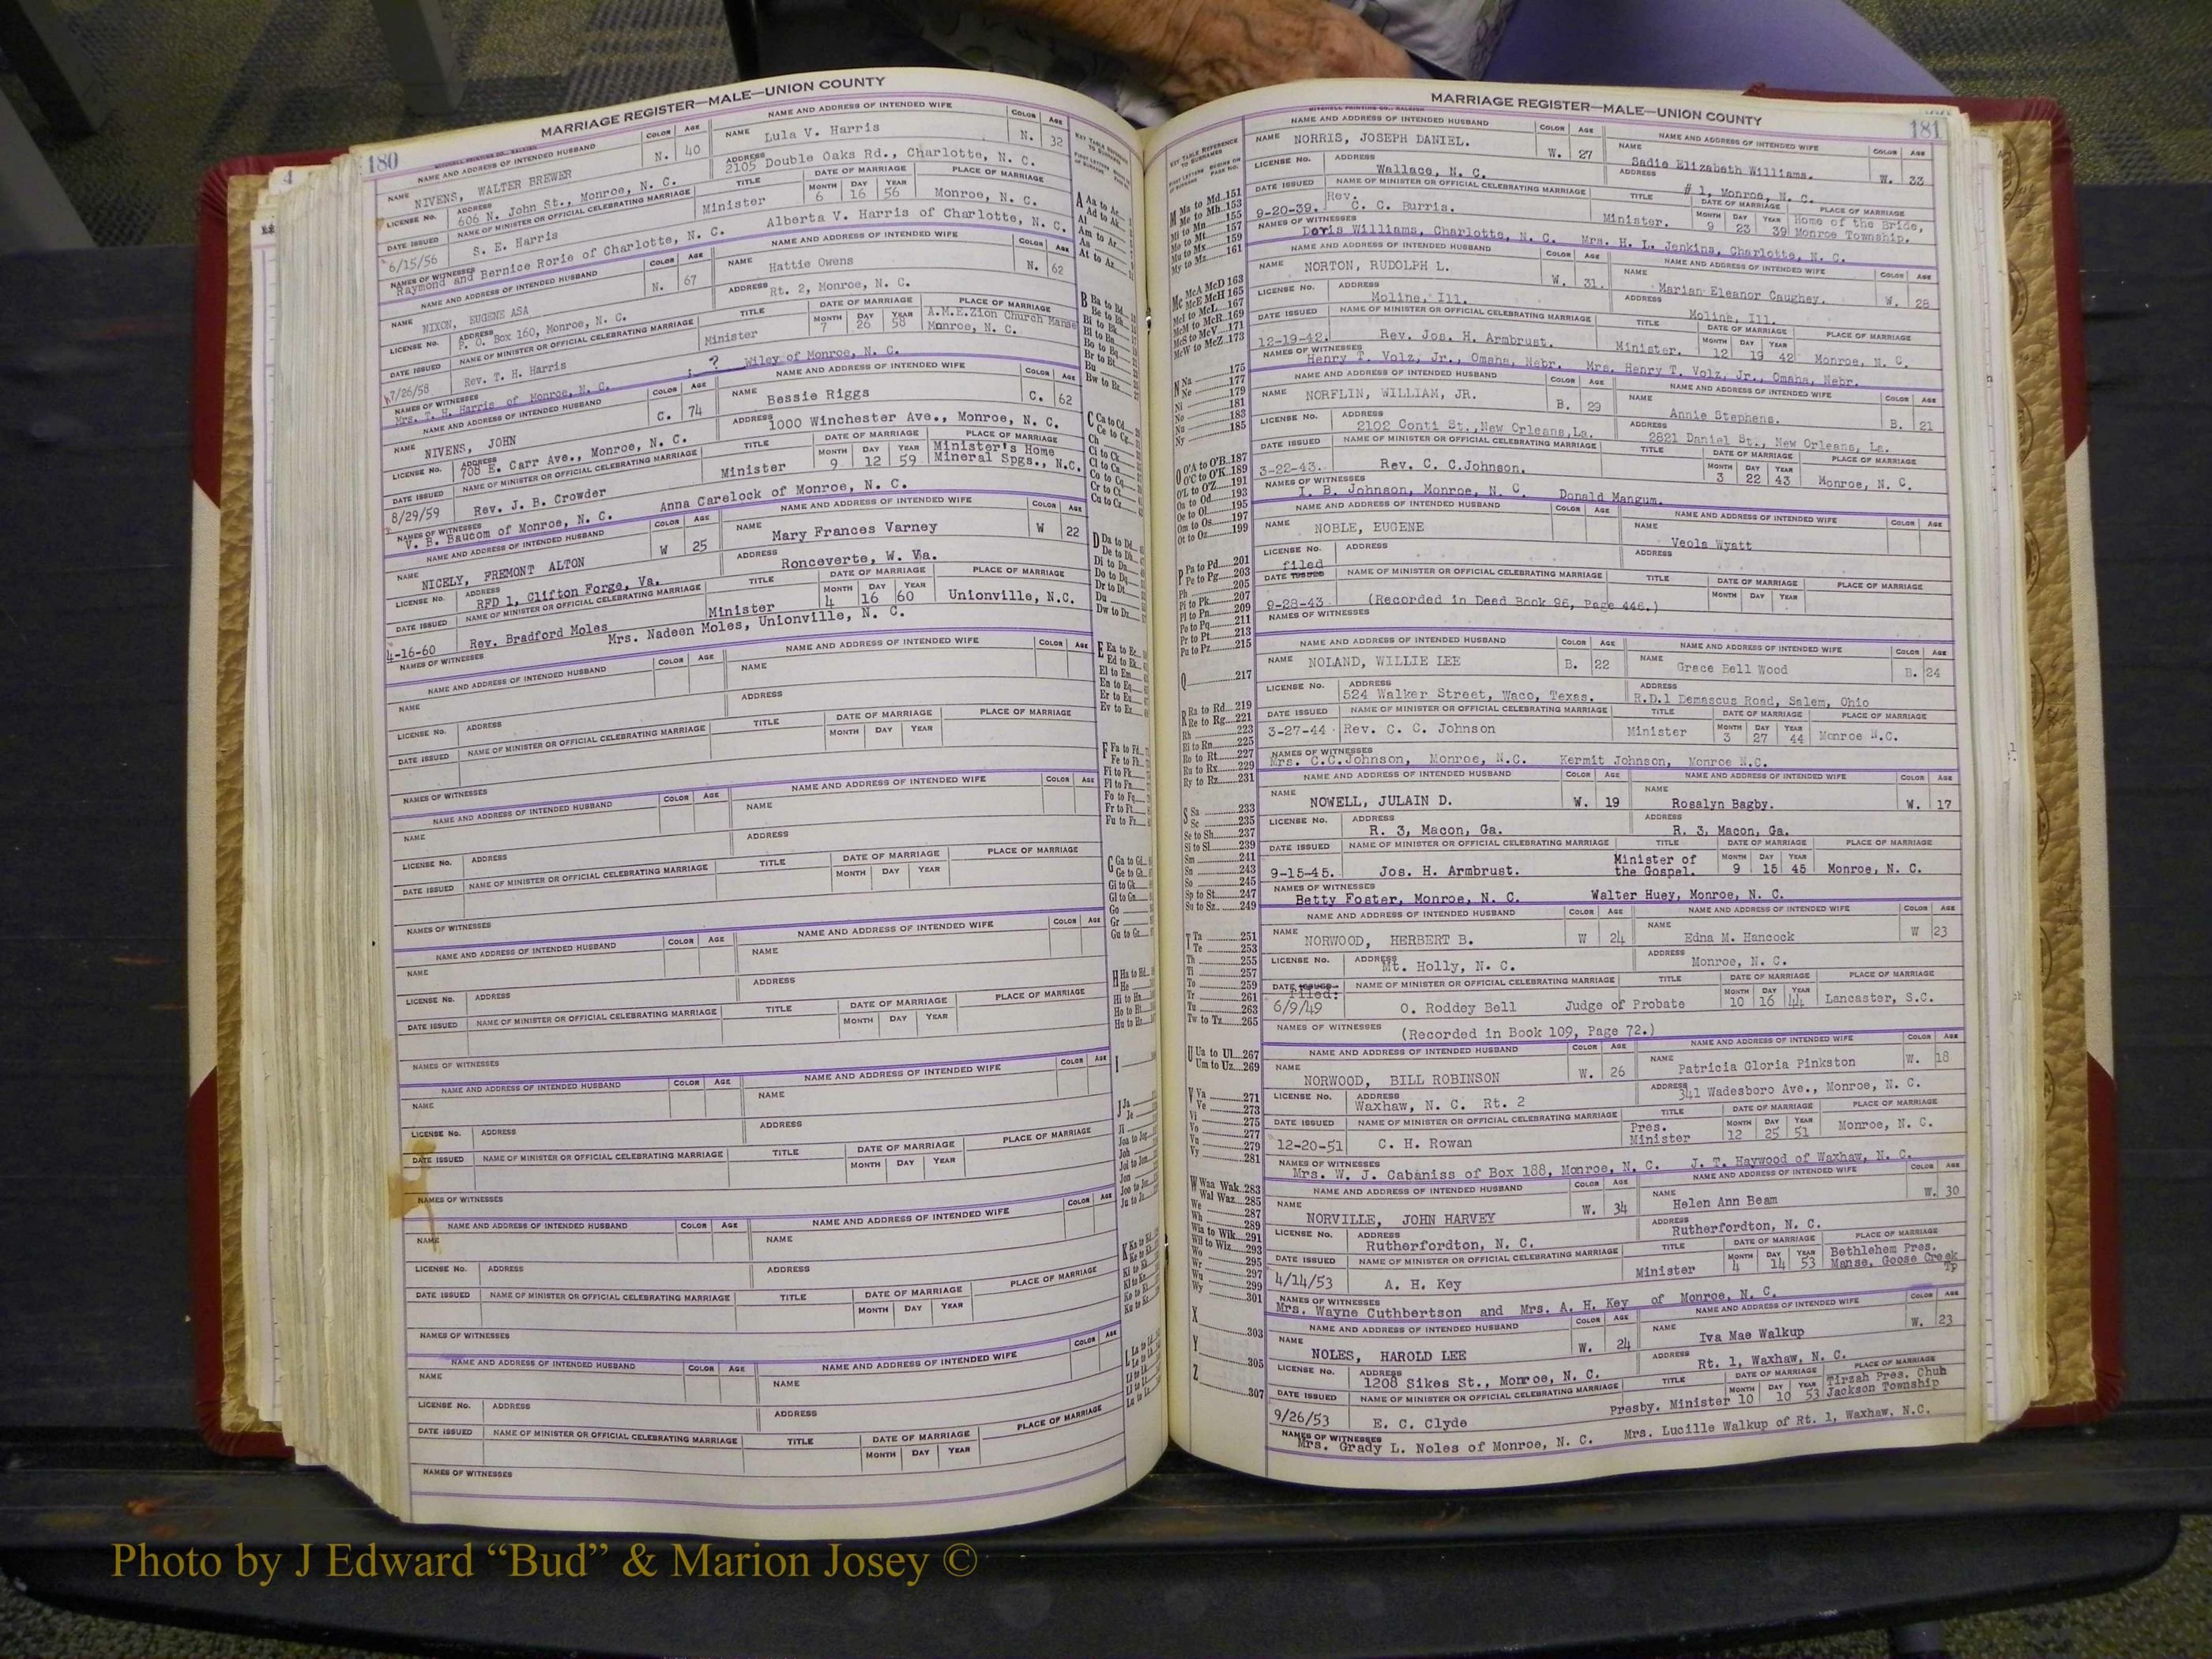 180
MARRIAGE REGISTER—MALE—UNION COUNTY
MITCHELL PRINTING CO., RALEIGH
NAME AND ADDRESS OF INTENDED HUSBAND COLOR AGE NAME AND ADDRESS OF INTENDED WIFE COLOR AGE
NAME NIVENS, WALTER BREWER N. 40 NAME Lula V. Harris N. 32
LICENSE No. ADDRESS 606 N. John St., Monroe, N. C. ADDRESS 2105 Double Oaks Rd., Charlotte, N. C.
DATE ISSUED NAME OF MINISTER OR OFFICIAL CELEBRATING MARRIAGE TITLE DATE OF MARRIAGE PLACE OF MARRIAGE
MONTH DAY YEAR
6/15/56 S. E. Harris Minister 6 16 56 Monroe, N. C.
NAMES OF WITNESSES Raymond and Bernice Rorie of Charlotte, N. C. Alberta V. Harris of Charlotte, N. C.
NAME AND ADDRESS OF INTENDED HUSBAND COLOR AGE NAME AND ADDRESS OF INTENDED WIFE COLOR AGE
NAME NIXON, EUGENE ASA N. 67 NAME Hattie Owens N. 62
LICENSE No. ADDRESS P. O. Box 160, Monroe, N. C. ADDRESS Rt. 2, Monroe, N. C.
DATE ISSUED NAME OF MINISTER OR OFFICIAL CELEBRATING MARRIAGE TITLE DATE OF MARRIAGE PLACE OF MARRIAGE
MONTH DAY YEAR
7/26/58 Rev. T. H. Harris Minister 7 26 58 A.M.E.Zion Church Manse Monroe, N. C.
NAMES OF WITNESSES Mrs. T. H. Harris of Monroe, N. C. ; ? Wiley of Monroe, N. C.
NAME AND ADDRESS OF INTENDED HUSBAND COLOR AGE NAME AND ADDRESS OF INTENDED WIFE COLOR AGE
NAME NIVENS, JOHN C. 74 NAME Bessie Riggs C. 62
LICENSE No. ADDRESS 708 E. Carr Ave., Monroe, N. C. ADDRESS 1000 Winchester Ave., Monroe, N. C.
DATE ISSUED NAME OF MINISTER OR OFFICIAL CELEBRATING MARRIAGE TITLE DATE OF MARRIAGE PLACE OF MARRIAGE
MONTH DAY YEAR
8/29/59 Rev. J. B. Crowder Minister 9 12 59 Minister's Home Mineral Spgs., N.C.
NAMES OF WITNESSES V. B. Baucom of Monroe, N. C. Anna Carelock of Monroe, N. C.
NAME AND ADDRESS OF INTENDED HUSBAND COLOR AGE NAME AND ADDRESS OF INTENDED WIFE COLOR AGE
NAME NICELY, FREMONT ALTON W 25 NAME Mary Frances Varney W 22
LICENSE No. ADDRESS RFD 1, Clifton Forge, Va. ADDRESS Ronceverte, W. Va.
DATE ISSUED NAME OF MINISTER OR OFFICIAL CELEBRATING MARRIAGE TITLE DATE OF MARRIAGE PLACE OF MARRIAGE
MONTH DAY YEAR
4-16-60 Rev. Bradford Moles Minister 4 16 60 Unionville, N.C.
NAMES OF WITNESSES Mrs. Nadeen Moles, Unionville, N. C.
NAME AND ADDRESS OF INTENDED HUSBAND COLOR AGE NAME AND ADDRESS OF INTENDED WIFE COLOR AGE
NAME NAME
LICENSE No. ADDRESS ADDRESS
DATE ISSUED NAME OF MINISTER OR OFFICIAL CELEBRATING MARRIAGE TITLE DATE OF MARRIAGE PLACE OF MARRIAGE
MONTH DAY YEAR
NAMES OF WITNESSES
NAME AND ADDRESS OF INTENDED HUSBAND COLOR AGE NAME AND ADDRESS OF INTENDED WIFE COLOR AGE
NAME NAME
LICENSE No. ADDRESS ADDRESS
DATE ISSUED NAME OF MINISTER OR OFFICIAL CELEBRATING MARRIAGE TITLE DATE OF MARRIAGE PLACE OF MARRIAGE
MONTH DAY YEAR
NAMES OF WITNESSES
NAME AND ADDRESS OF INTENDED HUSBAND COLOR AGE NAME AND ADDRESS OF INTENDED WIFE COLOR AGE
NAME NAME
LICENSE No. ADDRESS ADDRESS
DATE ISSUED NAME OF MINISTER OR OFFICIAL CELEBRATING MARRIAGE TITLE DATE OF MARRIAGE PLACE OF MARRIAGE
MONTH DAY YEAR
NAMES OF WITNESSES
NAME AND ADDRESS OF INTENDED HUSBAND COLOR AGE NAME AND ADDRESS OF INTENDED WIFE COLOR AGE
NAME NAME
LICENSE No. ADDRESS ADDRESS
DATE ISSUED NAME OF MINISTER OR OFFICIAL CELEBRATING MARRIAGE TITLE DATE OF MARRIAGE PLACE OF MARRIAGE
MONTH DAY YEAR
NAMES OF WITNESSES
NAME AND ADDRESS OF INTENDED HUSBAND COLOR AGE NAME AND ADDRESS OF INTENDED WIFE COLOR AGE
NAME NAME
LICENSE No. ADDRESS ADDRESS
DATE ISSUED NAME OF MINISTER OR OFFICIAL CELEBRATING MARRIAGE TITLE DATE OF MARRIAGE PLACE OF MARRIAGE
MONTH DAY YEAR
NAMES OF WITNESSES
NAME AND ADDRESS OF INTENDED HUSBAND COLOR AGE NAME AND ADDRESS OF INTENDED WIFE COLOR AGE
NAME NAME
LICENSE No. ADDRESS ADDRESS
DATE ISSUED NAME OF MINISTER OR OFFICIAL CELEBRATING MARRIAGE TITLE DATE OF MARRIAGE PLACE OF MARRIAGE
MONTH DAY YEAR
NAMES OF WITNESSES
KEY TABLE REFERENCE TO SURNAMES
M Ma to Md..151
Me to Mh.153
Mi to Mn.....155
Mo to Mt.....157
Mu to Mx....159
My to Mz....161
Mc McA McD 163
McE McH 165
McI to McL..167
McM to McR..169
McS to McV...171
McW to McZ..173
N Na 175
Ne 177
Ni 179
No 181
Nu 183
Ny 185
O O'A to O'B..187
O'C to O'K..189
O'L to O'Z..191
Oa to Od.....193
Oe to Ol.....195
Om to Os....197
Ot to Oz.....199
P Pa to Pd.....201
Pe to Pg.....203
Ph 205
Pi to Pk.....207
Pl to Pn.....209
Po to Pq.....211
Pr to Pt.....213
Pu to Pz.....215
Q 217
R Ra to Rd...219
Re to Rg....221
Rh 223
Ri to Rn.....225
Ro to Rt.....227
Ru to Rx....229
Ry to Rz....231
S Sa 233
Sc 235
Se to Sh.....237
Si to Sl.....239
Sm 241
Sn 243
So 245
Sp to St.....247
Su to Sz....249
T Ta 251
Te 253
Th 255
Ti 257
To 259
Tr 261
Tu 263
Tw to Tz....265
U Ua to Ul....267
Um to Uz...269
V Va 271
Ve 273
Vi 275
Vo 277
Vu 279
Vy 281
W Waa Wak..283
Wal Waz...285
We 287
Wh 289
Wia to Wik...291
Wil to Wiz...293
Wo 295
Wr 297
Wu 299
Wy 301
X 303
Y 305
Z 307
MARRIAGE REGISTER—MALE—UNION COUNTY
181
MITCHELL PRINTING CO., RALEIGH
NAME AND ADDRESS OF INTENDED HUSBAND COLOR AGE NAME AND ADDRESS OF INTENDED WIFE COLOR AGE
NAME NORRIS, JOSEPH DANIEL. W. 27 NAME Sadie Elizabeth Williams. W. 33
LICENSE No. ADDRESS Wallace, N. C. ADDRESS # 1, Monroe, N. C.
DATE ISSUED NAME OF MINISTER OR OFFICIAL CELEBRATING MARRIAGE TITLE DATE OF MARRIAGE PLACE OF MARRIAGE
MONTH DAY YEAR
9-20-39. Rev. C. C. Burris. Minister. 9 23 39 Home of the Bride, Monroe Township.
NAMES OF WITNESSES Doris Williams, Charlotte, N. C. Mrs. H. L. Jenkins, Charlotte, N. C.
NAME AND ADDRESS OF INTENDED HUSBAND COLOR AGE NAME AND ADDRESS OF INTENDED WIFE COLOR AGE
NAME NORTON, RUDOLPH L. W. 31. NAME Marian Eleanor Caughey. W. 28
LICENSE No. ADDRESS Moline, Ill. ADDRESS Moline, Ill.
DATE ISSUED NAME OF MINISTER OR OFFICIAL CELEBRATING MARRIAGE TITLE DATE OF MARRIAGE PLACE OF MARRIAGE
MONTH DAY YEAR
12-19-42. Rev. Jos. H. Armbrust. Minister. 12 19 42 Monroe, N. C
NAMES OF WITNESSES Henry T. Volz, Jr., Omaha, Nebr. Mrs. Henry T. Volz, Jr., Omaha, Nebr.
NAME AND ADDRESS OF INTENDED HUSBAND COLOR AGE NAME AND ADDRESS OF INTENDED WIFE COLOR AGE
NAME NORFLIN, WILLIAM, JR. B. 29 NAME Annie Stephens. B. 21
LICENSE No. ADDRESS 2102 Conti St.,New Orleans,La. ADDRESS 2821 Daniel St., New Orleans, La.
DATE ISSUED NAME OF MINISTER OR OFFICIAL CELEBRATING MARRIAGE TITLE DATE OF MARRIAGE PLACE OF MARRIAGE
MONTH DAY YEAR
3-22-43. Rev. C. C.Johnson. 3 22 43 Monroe, N. C.
NAMES OF WITNESSES I. B. Johnson, Monroe, N. C. Donald Mangum.
NAME AND ADDRESS OF INTENDED HUSBAND NAME AND ADDRESS OF INTENDED WIFE COLOR AGE
NAME NOBLE, EUGENE NAME Veola Wyatt
LICENSE No. ADDRESS ADDRESS
filed
DATE ISSUED NAME OF MINISTER OR OFFICIAL CELEBRATING MARRIAGE TITLE DATE OF MARRIAGE PLACE OF MARRIAGE
MONTH DAY YEAR
9-28-43 (Recorded in Deed Book 96, Page 446.)
NAMES OF WITNESSES
NAME AND ADDRESS OF INTENDED HUSBAND COLOR AGE NAME AND ADDRESS OF INTENDED WIFE COLOR AGE
NAME NOLAND, WILLIE LEE B. 22 NAME Grace Bell Wood B. 24
LICENSE No. ADDRESS 524 Walker Street, Waco, Texas. ADDRESS R.D.1 Demascus Road, Salem, Ohio
DATE ISSUED NAME OF MINISTER OR OFFICIAL CELEBRATING MARRIAGE TITLE DATE OF MARRIAGE PLACE OF MARRIAGE
MONTH DAY YEAR
3-27-44 Rev. C. C. Johnson Minister 3 27 44 Monroe N.C.
NAMES OF WITNESSES Mrs. C.C.Johnson, Monroe, N.C. Kermit Johnson, Monroe N.C.
NAME AND ADDRESS OF INTENDED HUSBAND COLOR AGE NAME AND ADDRESS OF INTENDED WIFE COLOR AGE
NAME NOWELL, JULAIN D. W. 19 NAME Rosalyn Bagby. W. 17
LICENSE No. ADDRESS R. 3, Macon, Ga. ADDRESS R. 3, Macon, Ga.
DATE ISSUED NAME OF MINISTER OR OFFICIAL CELEBRATING MARRIAGE TITLE DATE OF MARRIAGE PLACE OF MARRIAGE
MONTH DAY YEAR
9-15-45. Jos. H. Armbrust. Minister of the Gospel. 9 15 45 Monroe, N. C.
NAMES OF WITNESSES Betty Foster, Monroe, N. C. Walter Huey, Monroe, N. C.
NAME AND ADDRESS OF INTENDED HUSBAND COLOR AGE NAME AND ADDRESS OF INTENDED WIFE COLOR AGE
NAME NORWOOD, HERBERT B. W 24 NAME Edna M. Hancock W 23
LICENSE No. ADDRESS Mt. Holly, N. C. ADDRESS Monroe, N. C.
DATE ISSUED NAME OF MINISTER OR OFFICIAL CELEBRATING MARRIAGE TITLE DATE OF MARRIAGE PLACE OF MARRIAGE
Filed: MONTH DAY YEAR
6/9/49 O. Roddey Bell Judge of Probate 10 16 44 Lancaster, S.C.
NAMES OF WITNESSES (Recorded in Book 109, Page 72.)
NAME AND ADDRESS OF INTENDED HUSBAND COLOR AGE NAME AND ADDRESS OF INTENDED WIFE COLOR AGE
NAME NORWOOD, BILL ROBINSON W. 26 NAME Patricia Gloria Pinkston W. 18
LICENSE No. ADDRESS Waxhaw, N. C. Rt. 2 ADDRESS 341 Wadesboro Ave., Monroe, N. C.
DATE ISSUED NAME OF MINISTER OR OFFICIAL CELEBRATING MARRIAGE TITLE DATE OF MARRIAGE PLACE OF MARRIAGE
MONTH DAY YEAR
12-20-51 C. H. Rowan Pres. Minister 12 25 51 Monroe, N. C.
NAMES OF WITNESSES Mrs. W. J. Cabaniss of Box 188, Monroe, N. C. J. T. Haywood of Waxhaw, N. C.
NAME AND ADDRESS OF INTENDED HUSBAND COLOR AGE NAME AND ADDRESS OF INTENDED WIFE COLOR AGE
NAME NORVILLE, JOHN HARVEY W. 34 NAME Helen Ann Beam W. 30
LICENSE No. ADDRESS Rutherfordton, N. C. ADDRESS Rutherfordton, N. C.
DATE ISSUED NAME OF MINISTER OR OFFICIAL CELEBRATING MARRIAGE TITLE DATE OF MARRIAGE PLACE OF MARRIAGE
MONTH DAY YEAR
4/14/53 A. H. Key Minister 4 14 53 Bethlehem Pres. Manse, Goose Creek Tp
NAMES OF WITNESSES Mrs. Wayne Cuthbertson and Mrs. A. H. Key of Monroe, N. C.
NAME AND ADDRESS OF INTENDED HUSBAND COLOR AGE NAME AND ADDRESS OF INTENDED WIFE COLOR AGE
NAME NOLES, HAROLD LEE W. 24 NAME Iva Mae Walkup W. 23
LICENSE No. ADDRESS 1208 Sikes St., Monroe, N. C. ADDRESS Rt. 1, Waxhaw, N. C.
DATE ISSUED NAME OF MINISTER OR OFFICIAL CELEBRATING MARRIAGE TITLE DATE OF MARRIAGE PLACE OF MARRIAGE
MONTH DAY YEAR
9/26/53 E. C. Clyde Presby. Minister 10 10 53 Tirzah Pres. Chuh Jackson Township
NAMES OF WITNESSES Mrs. Grady L. Noles of Monroe, N. C. Mrs. Lucille Walkup of Rt. 1, Waxhaw, N.C.
Photo by J Edward “Bud” & Marion Josey ©